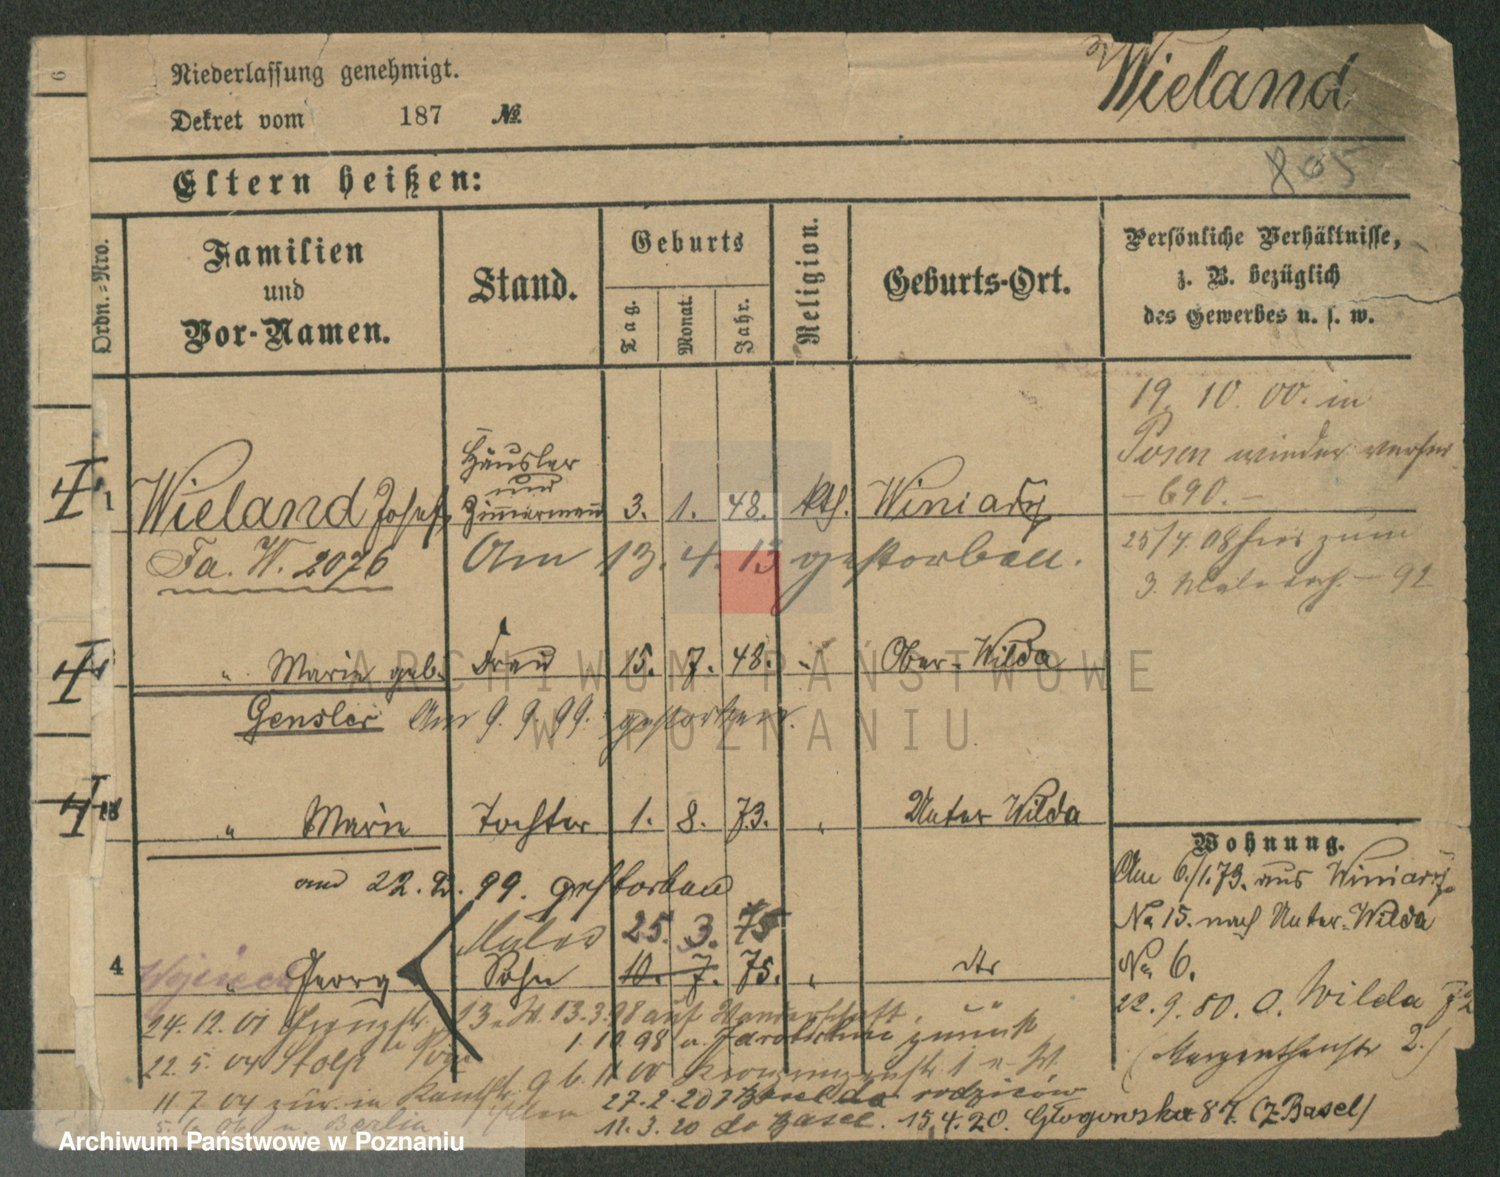 Niederlassung genehmigt.
Wieland
Dekret vom 187 №
Eltern heißen:
805
Ordn.-Nro.
Familien
und
Vor-Namen.
Stand.
Geburts
Tag.
Monat.
Jahr.
Religion.
Geburts-Ort.
Persönliche Verhältnisse,
z. B. bezüglich
des Gewerbes u. s. w.
19. 10. 00. in
Posen wieder
– 690. –
1 Wieland Josef Häusler und Zimmermann 3. 1. 48. kth. Winiary
Fa. W. 2076 Am 13. 4. 13 gestorben.
25/4 08 zum
3. Male – 92
" Marie geb. Frau 15. 7. 48. " Ober-Wilda
Gensler Am 9. 9. 99. gestorben.
" Marie Tochter 1. 8. 73. " Unter Wilda
am 22. 99. gestorben
Wohnung.
Am 6./1.73. aus Winiary
No 15. nach Unter-Wilda
No 6.
22. 9. 80. O. Wilda
2.)
Maler 25. 3. 75
4 " Georg Sohn 10. 7. 75. " dto
24. 12. 01 13. 3. 98 auf Wanderschaft.
1. 10. 98 v. Jarotschin zurück
22. 5. 04 Stolp
11. 7. 04 zur. in
Berlin
27. 2. 20 z Basel do rodziców
11. 3. 20 do Basel. 15. 4. 20. Głogowska 87. (z Basel)
ARCHIWUM PAŃSTWOWE
W POZNANIU
Archiwum Państwowe w Poznaniu